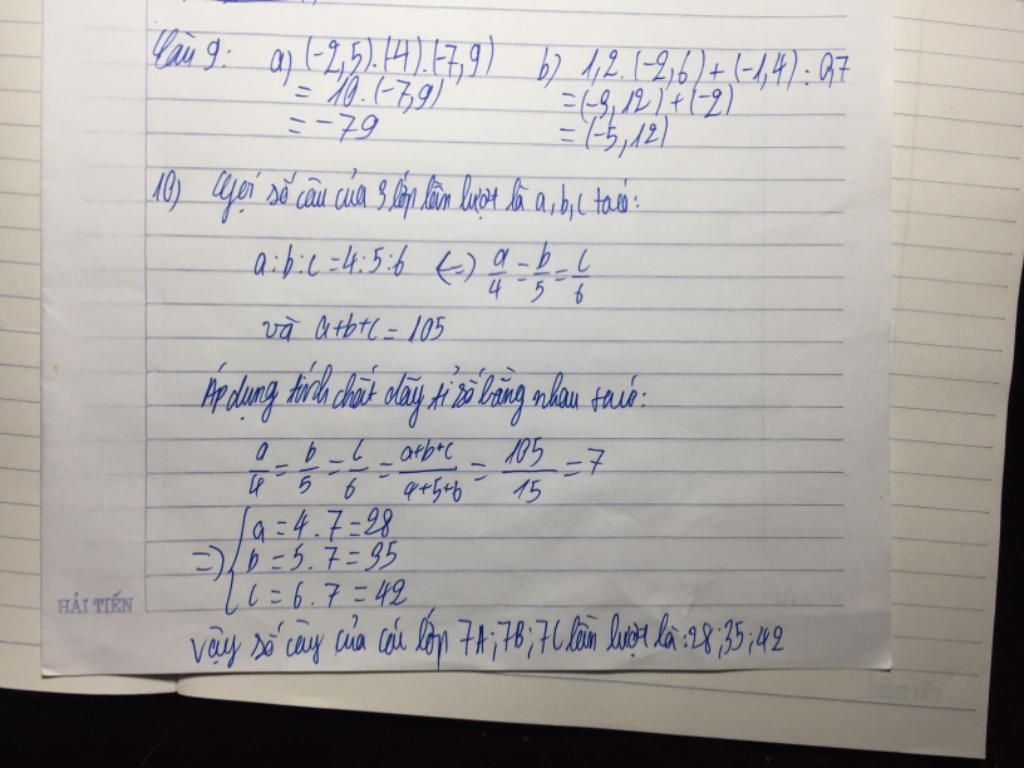 Câu 9: a) (-2,5).(-4).(-7,9) b) 1,2.(-2,6)+(-1,4):0,7
= 10.(-7,9) =(-3,12)+(-2)
= -79 = (-5,12)
10) Gọi số cây của 3 lớp lần lượt là a,b,c ta có:
a:b:c=4:5:6 (=) a/4 = b/5 = c/6
và a+b+c= 105
Áp dụng tính chất dãy tỉ số bằng nhau ta có:
a/4 = b/5 = c/6 = a+b+c/4+5+6 = 105/15 = 7
=) { a = 4.7=28
b = 5.7=35
c = 6.7=42
HẢI TIẾN
Vậy số cây của các lớp 7A;7B;7C lần lượt là:28;35;42